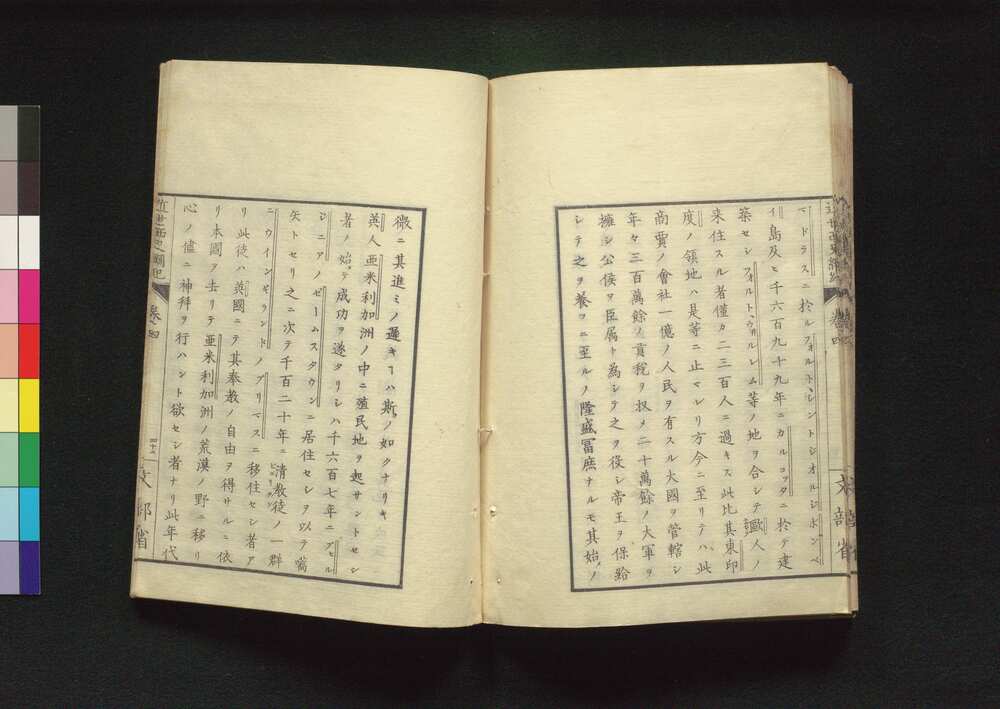 マドラスニ於ルフォルトシントジオルジボンベ
イ島及ヒ千六百九十九年ニカルコッタニ於テ建
築セシフォルトウィルレム等ノ地ヲ合シテ歐人ノ
来住スル者僅カ二三百人ニ過キス此比其東印
度ノ領地ハ是等ニ止マレリ方今ニ至リテハ此
商賈ノ會社一億ノ人民ヲ有スル大國ヲ管轄シ
年々三百萬餘ノ貢税ヲ収メ二十萬餘ノ大軍ヲ
擁シ公侯ヲ臣属ト為シテ之ヲ役シ帝王ヲ保給
シテ之ヲ養フニ至ルノ隆盛冨庶ナルモ其始ノ
文部省
微ニ其進ミノ遲キヿハ斯ノ如クナリキ
英人亜米利加洲ノ中ニ殖民地ヲ起サントセシ
者ノ始テ成功ヲ遂タリシハ千六百七年ニブェル
ジニアノゼームスタウンニ居住セシヲ以テ嚆
矢トセリ之ニ次テ千百二十年ニ清教徒ノ一群
ニウインギランドノプリマスニ移住セシ者ア
リ此徒ハ英國ニテ其奉教ノ自由ヲ得サルニ依
リ本國ヲ去リテ亜米利加洲ノ荒漠ノ野ニ移リ
心ノ儘ニ神拜ヲ行ハント欲セシ者ナリ此年代
近世西史綱紀 卷之四 四十六 文部省